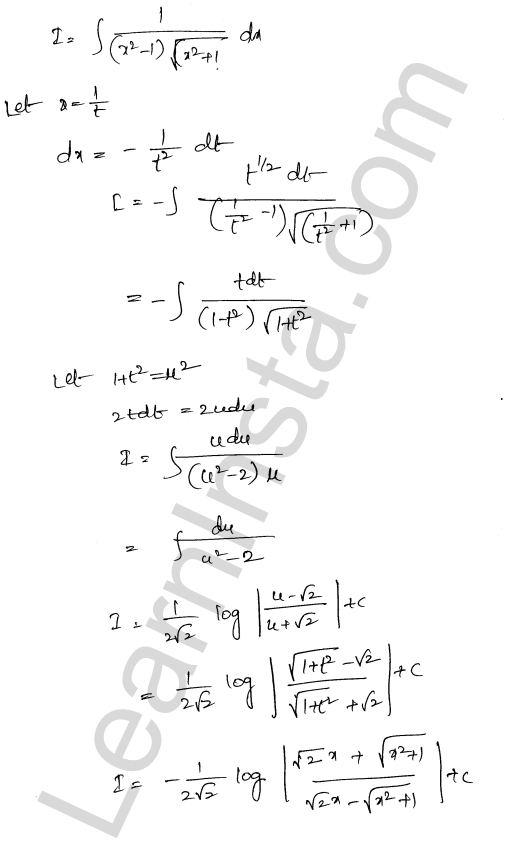 I = ∫ 1/((x²-1)√(x²+1)) dx
Let x = 1/t
dx = - 1/t² dt
I = -∫ t^1/2 dt/((1/t² -1)√(1/t² +1))
= -∫ tdt/((1-t²)√1+t²)
Let 1+t² = u²
2tdt = 2udu
I = ∫ udu/((u²-2)u)
= ∫ du/(u²-2)
I = 1/(2√2) log |(u-√2)/(u+√2)| +c
= 1/(2√2) log |(√1+t² -√2)/(√1+t² +√2)| +c
I = -1/(2√2) log |(√2x + √(x²+1))/(√2x - √(x²+1))| +c
LearnInsta.com